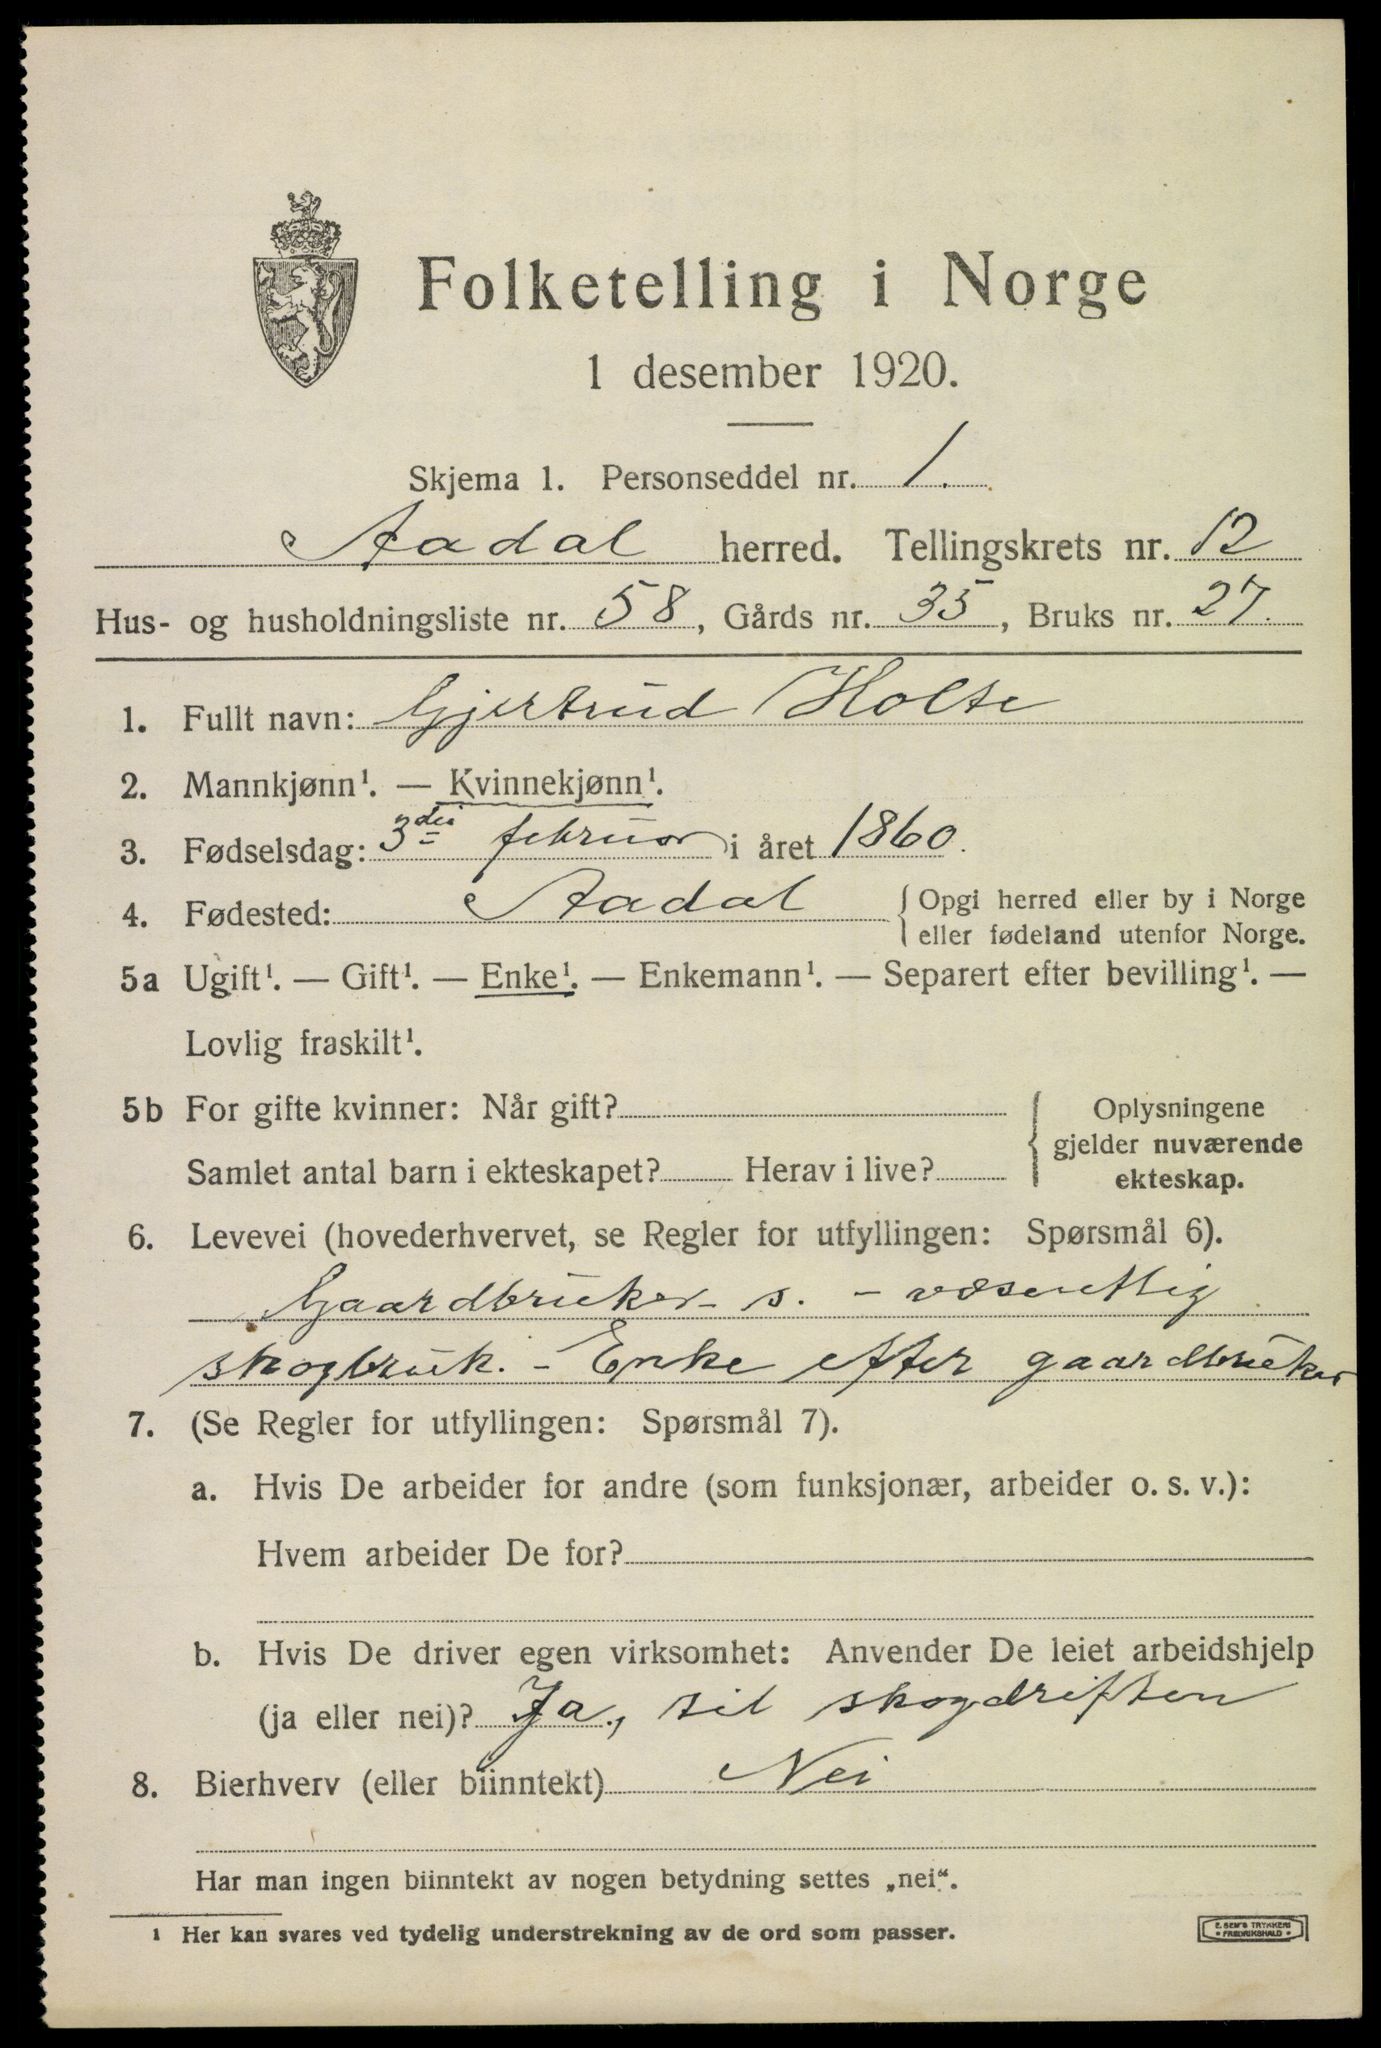 Folketelling i Norge
1 desember 1920.
Skjema 1. Personseddel nr. 1.
Aadal herred. Tellingskrets nr. 12
Hus- og husholdningsliste nr. 58, Gårds nr. 35, Bruks nr. 27.
1. Fullt navn: Gjertrud Holte
2. Mannkjønn¹. — Kvinnekjønn¹.
3. Fødselsdag: 3die februar i året 1860.
4. Fødested: Aadal { Opgi herred eller by i Norge
eller fødeland utenfor Norge.
5a Ugift¹. — Gift¹. — Enke¹. — Enkemann¹. — Separert efter bevilling¹. —
Lovlig fraskilt¹.
5b For gifte kvinner: Når gift? Oplysningene
gjelder nuværende
Samlet antal barn i ekteskapet? Herav i live? ekteskap.
6. Levevei (hovederhvervet, se Regler for utfyllingen: Spørsmål 6).
Gaardbruker s. – væsentlig
skogbruk. – Enke efter gaardbruker
7. (Se Regler for utfyllingen: Spørsmål 7).
a. Hvis De arbeider for andre (som funksjonær, arbeider o. s. v.):
Hvem arbeider De for?
b. Hvis De driver egen virksomhet: Anvender De leiet arbeidshjelp
(ja eller nei)? Ja, til skogdriften
8. Bierhverv (eller biinntekt) Nei
Har man ingen biinntekt av nogen betydning settes „nei“.
¹ Her kan svares ved tydelig understrekning av de ord som passer.
E. SEM'S TRYKKERI
• FREDRIKSHALD •